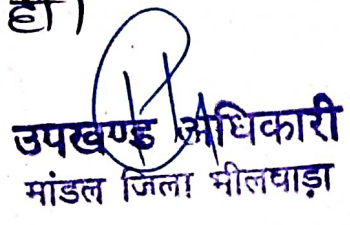 है।
उपखण्ड अधिकारी
मांडल जिला भीलवाड़ा